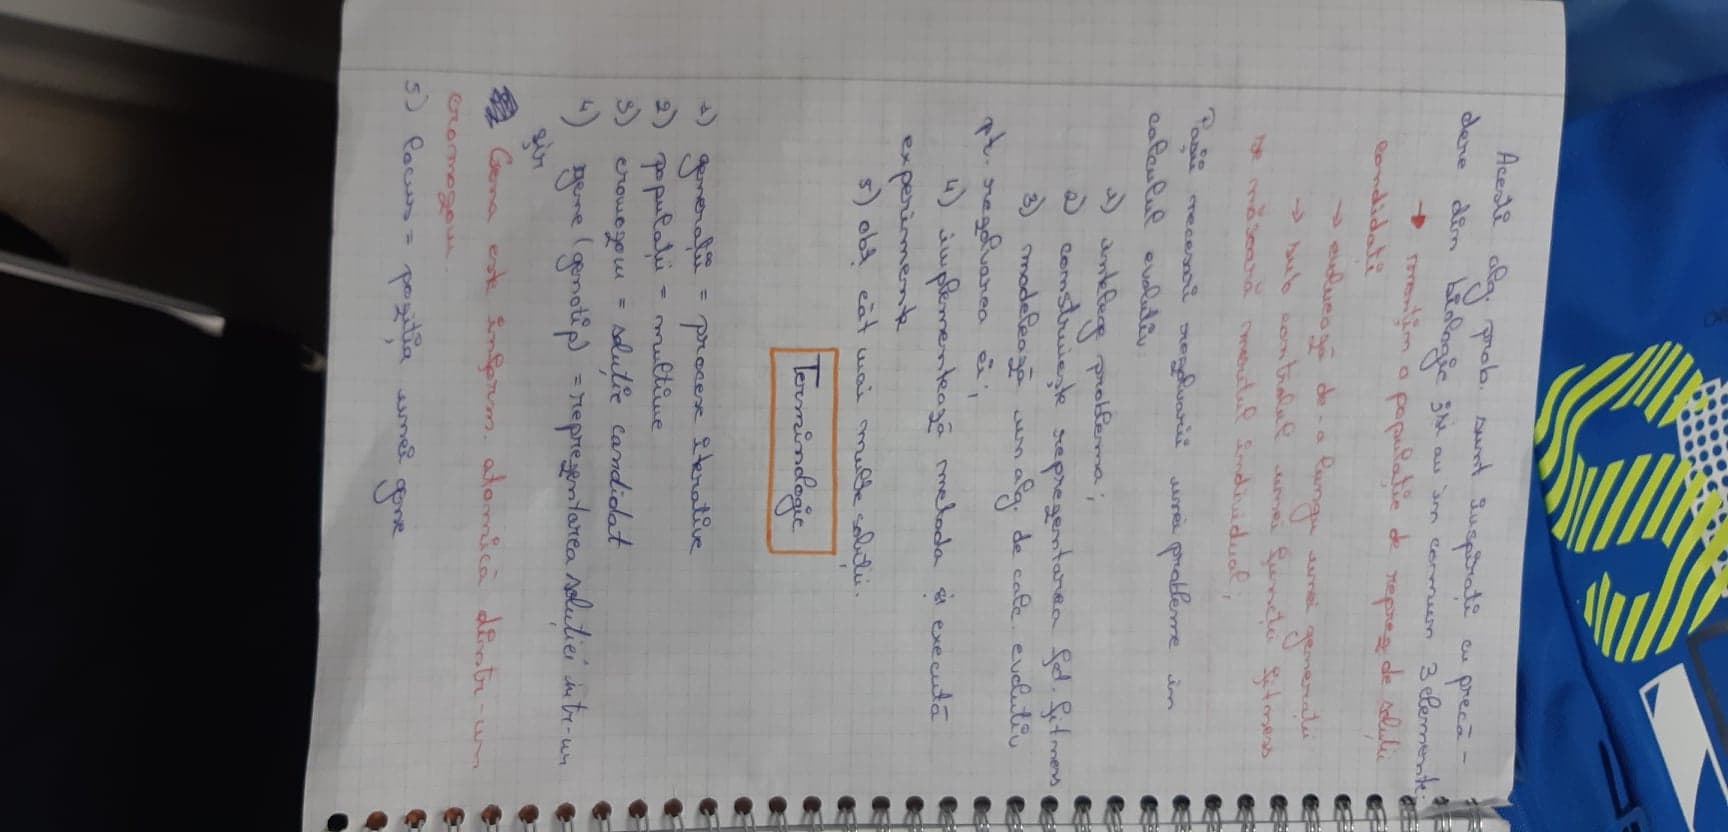 Acesti alg. prob. sunt inspirați cu precă-
dere din biologie și au în comun 3 elemente:
→ menținm o populație de reprez de soluții
candidați
→ evoluează de-a lungu unei generații
→ sub controlul unei funcții fitness
se măsoară meritul individual;
Pașii necesari rezolvarii unei probleme in
calculul evolutiv
1) intelege problema;
2) construiește reprezentarea fct. fitness
3) modelează un alg. de calc. evolutiv
pt. rezolvarea ei;
4) implementează metoda și execută
experimente
5) obț cât mai multe soluții.
Terminologie
1) generații = procese iterative
2) populații = multime
3) cromozom = soluție candidat
4) gene (genotip) = reprezentarea soluției intr-un
șir
Gena este inform. atomică dintr-un
cromozom.
5) locus = poziția unei gene